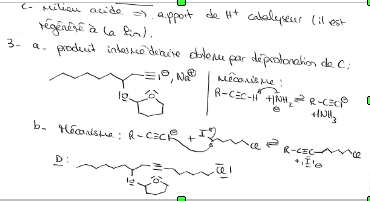 c- milieu acide ⟹ apport de H⁺ catalyseur (il est
régénéré à la fin).
3- a- produit intermédiaire obtenu par déprotonation de C:
≡|⊖, Na⊕
Mécanisme:
R-C≡C-H + |NH₂⊖ ⇌ R-C≡C|⊖
+ NH₃
b- Mécanisme: R-C≡C|⊖ + I Cl ⇌ R-C≡C Cl
+ |I|⊖
D: Cl|